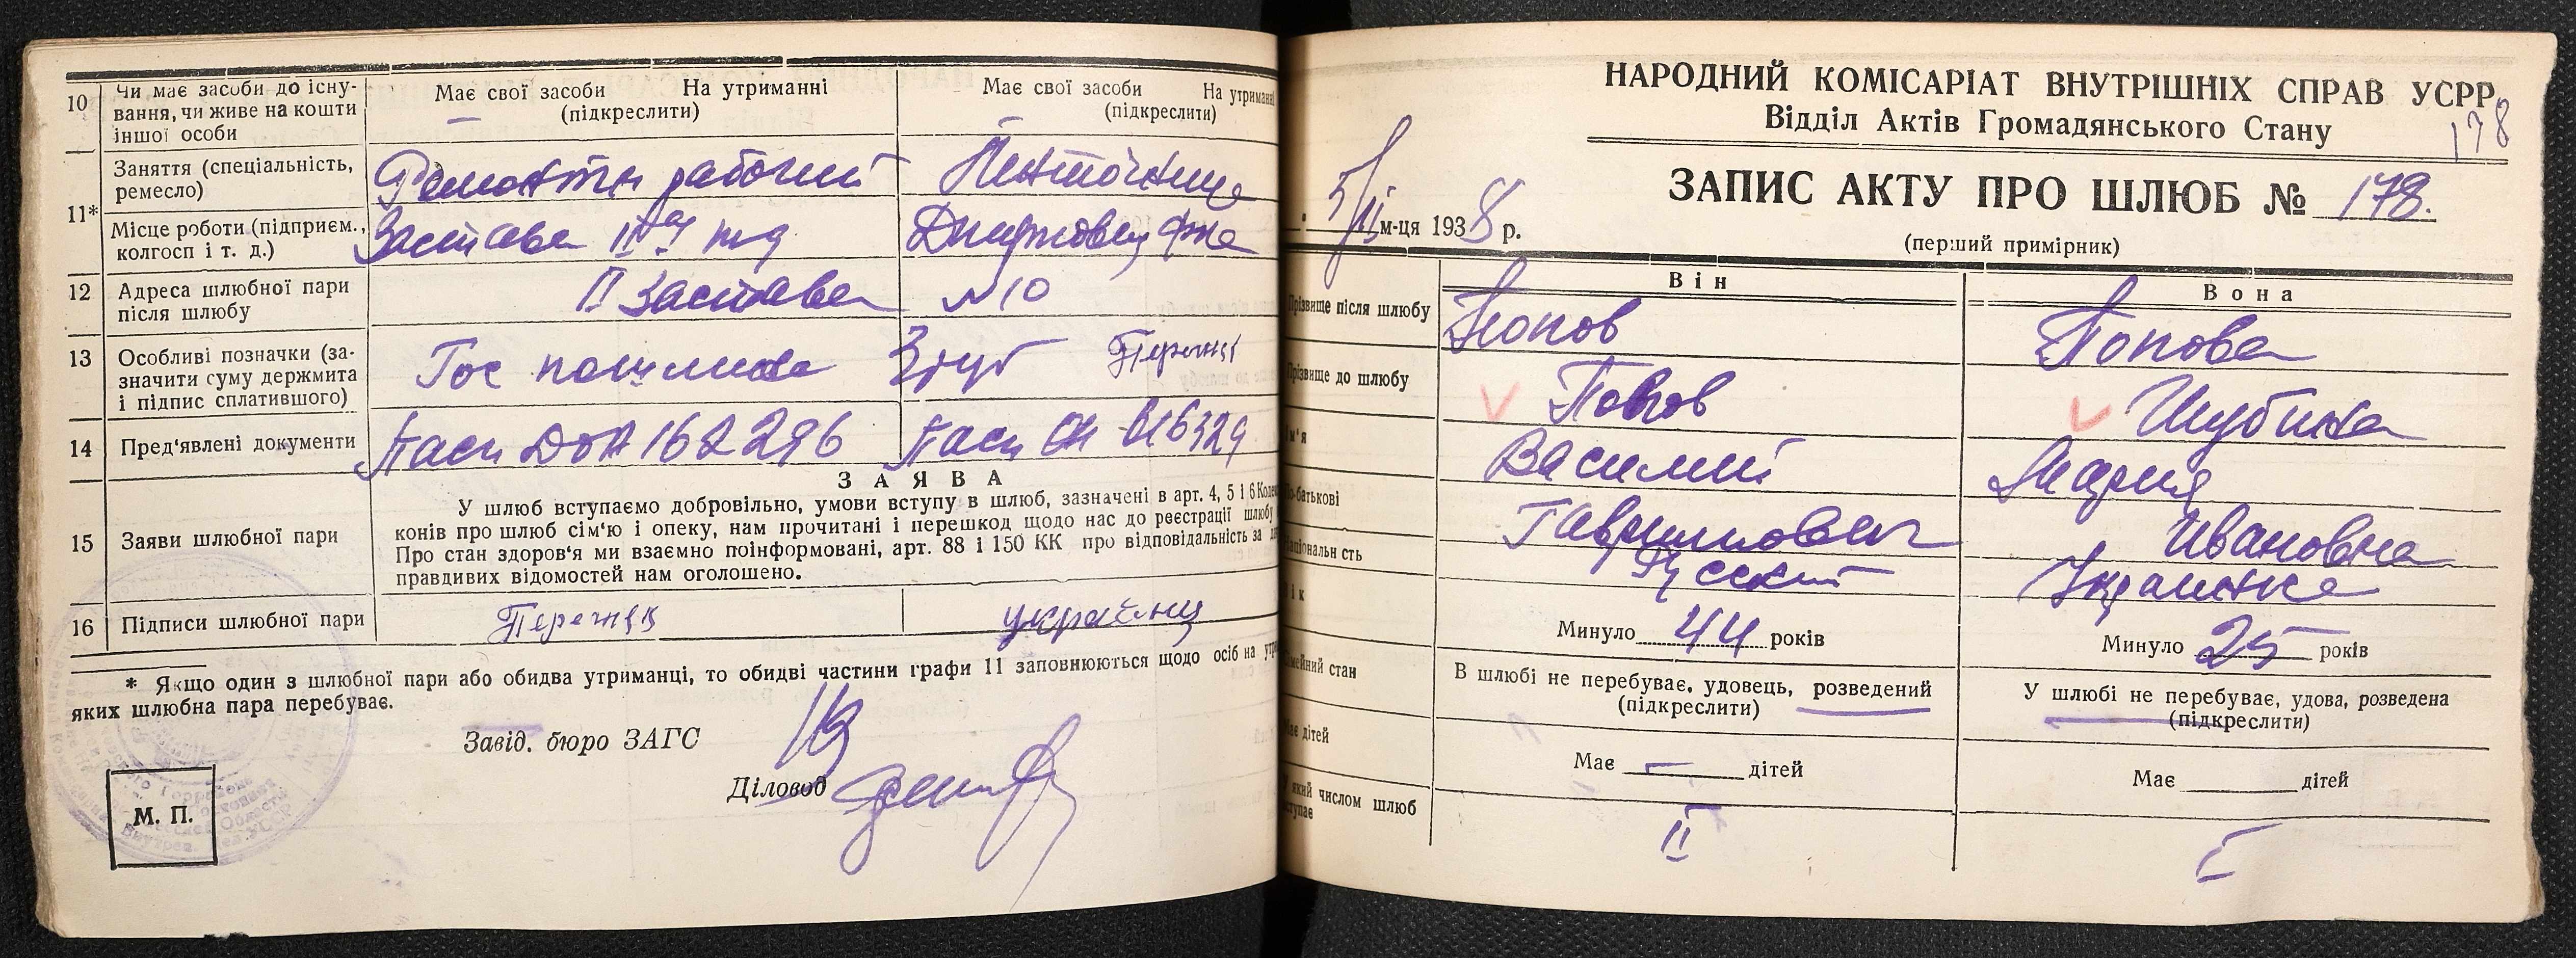 10 Чи має засоби до існу-
вання, чи живе на кошти
іншої особи
Має свої засоби На утриманні
(підкреслити)
Має свої засоби На утриманні
(підкреслити)
11*
Заняття (спеціальність,
ремесло)
рабочий
Місце роботи (підприєм.,
колгосп і т. д.)
Застава
12 Адреса шлюбної пари
після шлюбу
II Застава №10
13 Особливі позначки (за-
значити суму держмита
і підпис сплатившого)
Гос пошлина
14 Пред'явлені документи
Пасп 162296
Пасп 616329
15 Заяви шлюбної пари
ЗАЯВА
У шлюб вступаємо добровільно, умови вступу в шлюб, зазначені в арт. 4, 5 і 6
конів про шлюб сім'ю і опеку, нам прочитані і перешкод щодо нас до реєстрації шлюбу
Про стан здоров'я ми взаємно поінформовані, арт. 88 і 150 КК про відповідальність за
правдивих відомостей нам оголошено.
16 Підписи шлюбної пари
* Якщо один з шлюбної пари або обидва утриманці, то обидві частини графи 11 заповнюються щодо осіб на
яких шлюбна пара перебуває.
Завід. бюро ЗАГС
Діловод
М. П.
НАРОДНИЙ КОМІСАРІАТ ВНУТРІШНІХ СПРАВ УСРР
Відділ Актів Громадянського Стану
178
ЗАПИС АКТУ ПРО ШЛЮБ № 178.
(перший примірник)
м-ця 1938 р.
Він Вона
Прізвище після шлюбу
Попов Попова
Прізвище до шлюбу
Попов Шубина
Василий Мария
по-батькові
Гаврилович Ивановна
Русский Украинка
Минуло 44 років
Минуло 25 років
стан
В шлюбі не перебуває, удовець, розведений
(підкреслити)
У шлюбі не перебуває, удова, розведена
(підкреслити)
дітей
Має — дітей
Має дітей
числом шлюб
II I